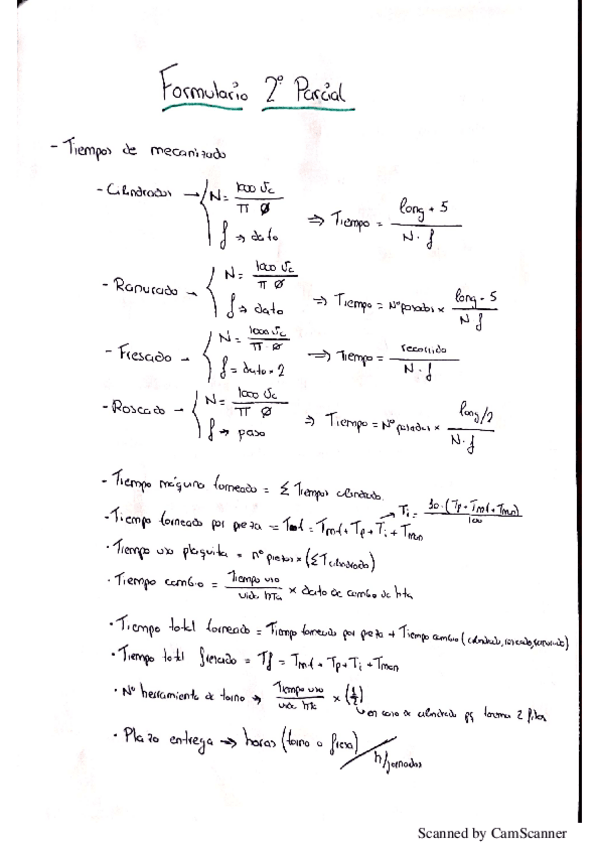 Formulario 2º Parcial
- Tiempos de mecanizado
- Cilindrados → N = 1000 Vc / π Ø
f → dato
⇒ Tiempo = long + 5 / N · f
- Ranurado → N = 1000 Vc / π Ø
f → dato
⇒ Tiempo = Nº pasadas × long - 5 / N f
- Fresado → N = 1000 Vc / π Ø
f = dato × 2
⇒ Tiempo = recorrido / N · f
- Roscado → N = 1000 Vc / π Ø
f → paso
⇒ Tiempo = Nº pasadas × long/2 / N · f
- Tiempo máquina torneado = Σ Tiempos cilindrado
- Tiempo torneado por pieza = = Tm1 + Tp + Ti + Tman
→ Ti = 10 · (Tp + Tm1 + Tman) / 100
· Tiempo uso plaquita = nº piezas × (Σ T cilindrado)
· Tiempo cambio = Tiempo uso / vida hta × dato de cambio de hta
· Tiempo total torneado = Tiempo torneado por pieza + Tiempo cambio (cilindrado, roscado, ranurado)
· Tiempo total fresado = Tf = Tm1 + Tp + Ti + Tman
· Nº herramienta de torno → Tiempo uso / vida hta × (1/2)
↳ en caso de cilindrado pq tenemos 2 filos
· Plazo entrega → horas (torno o fresa) / h/jornadas
Scanned by CamScanner